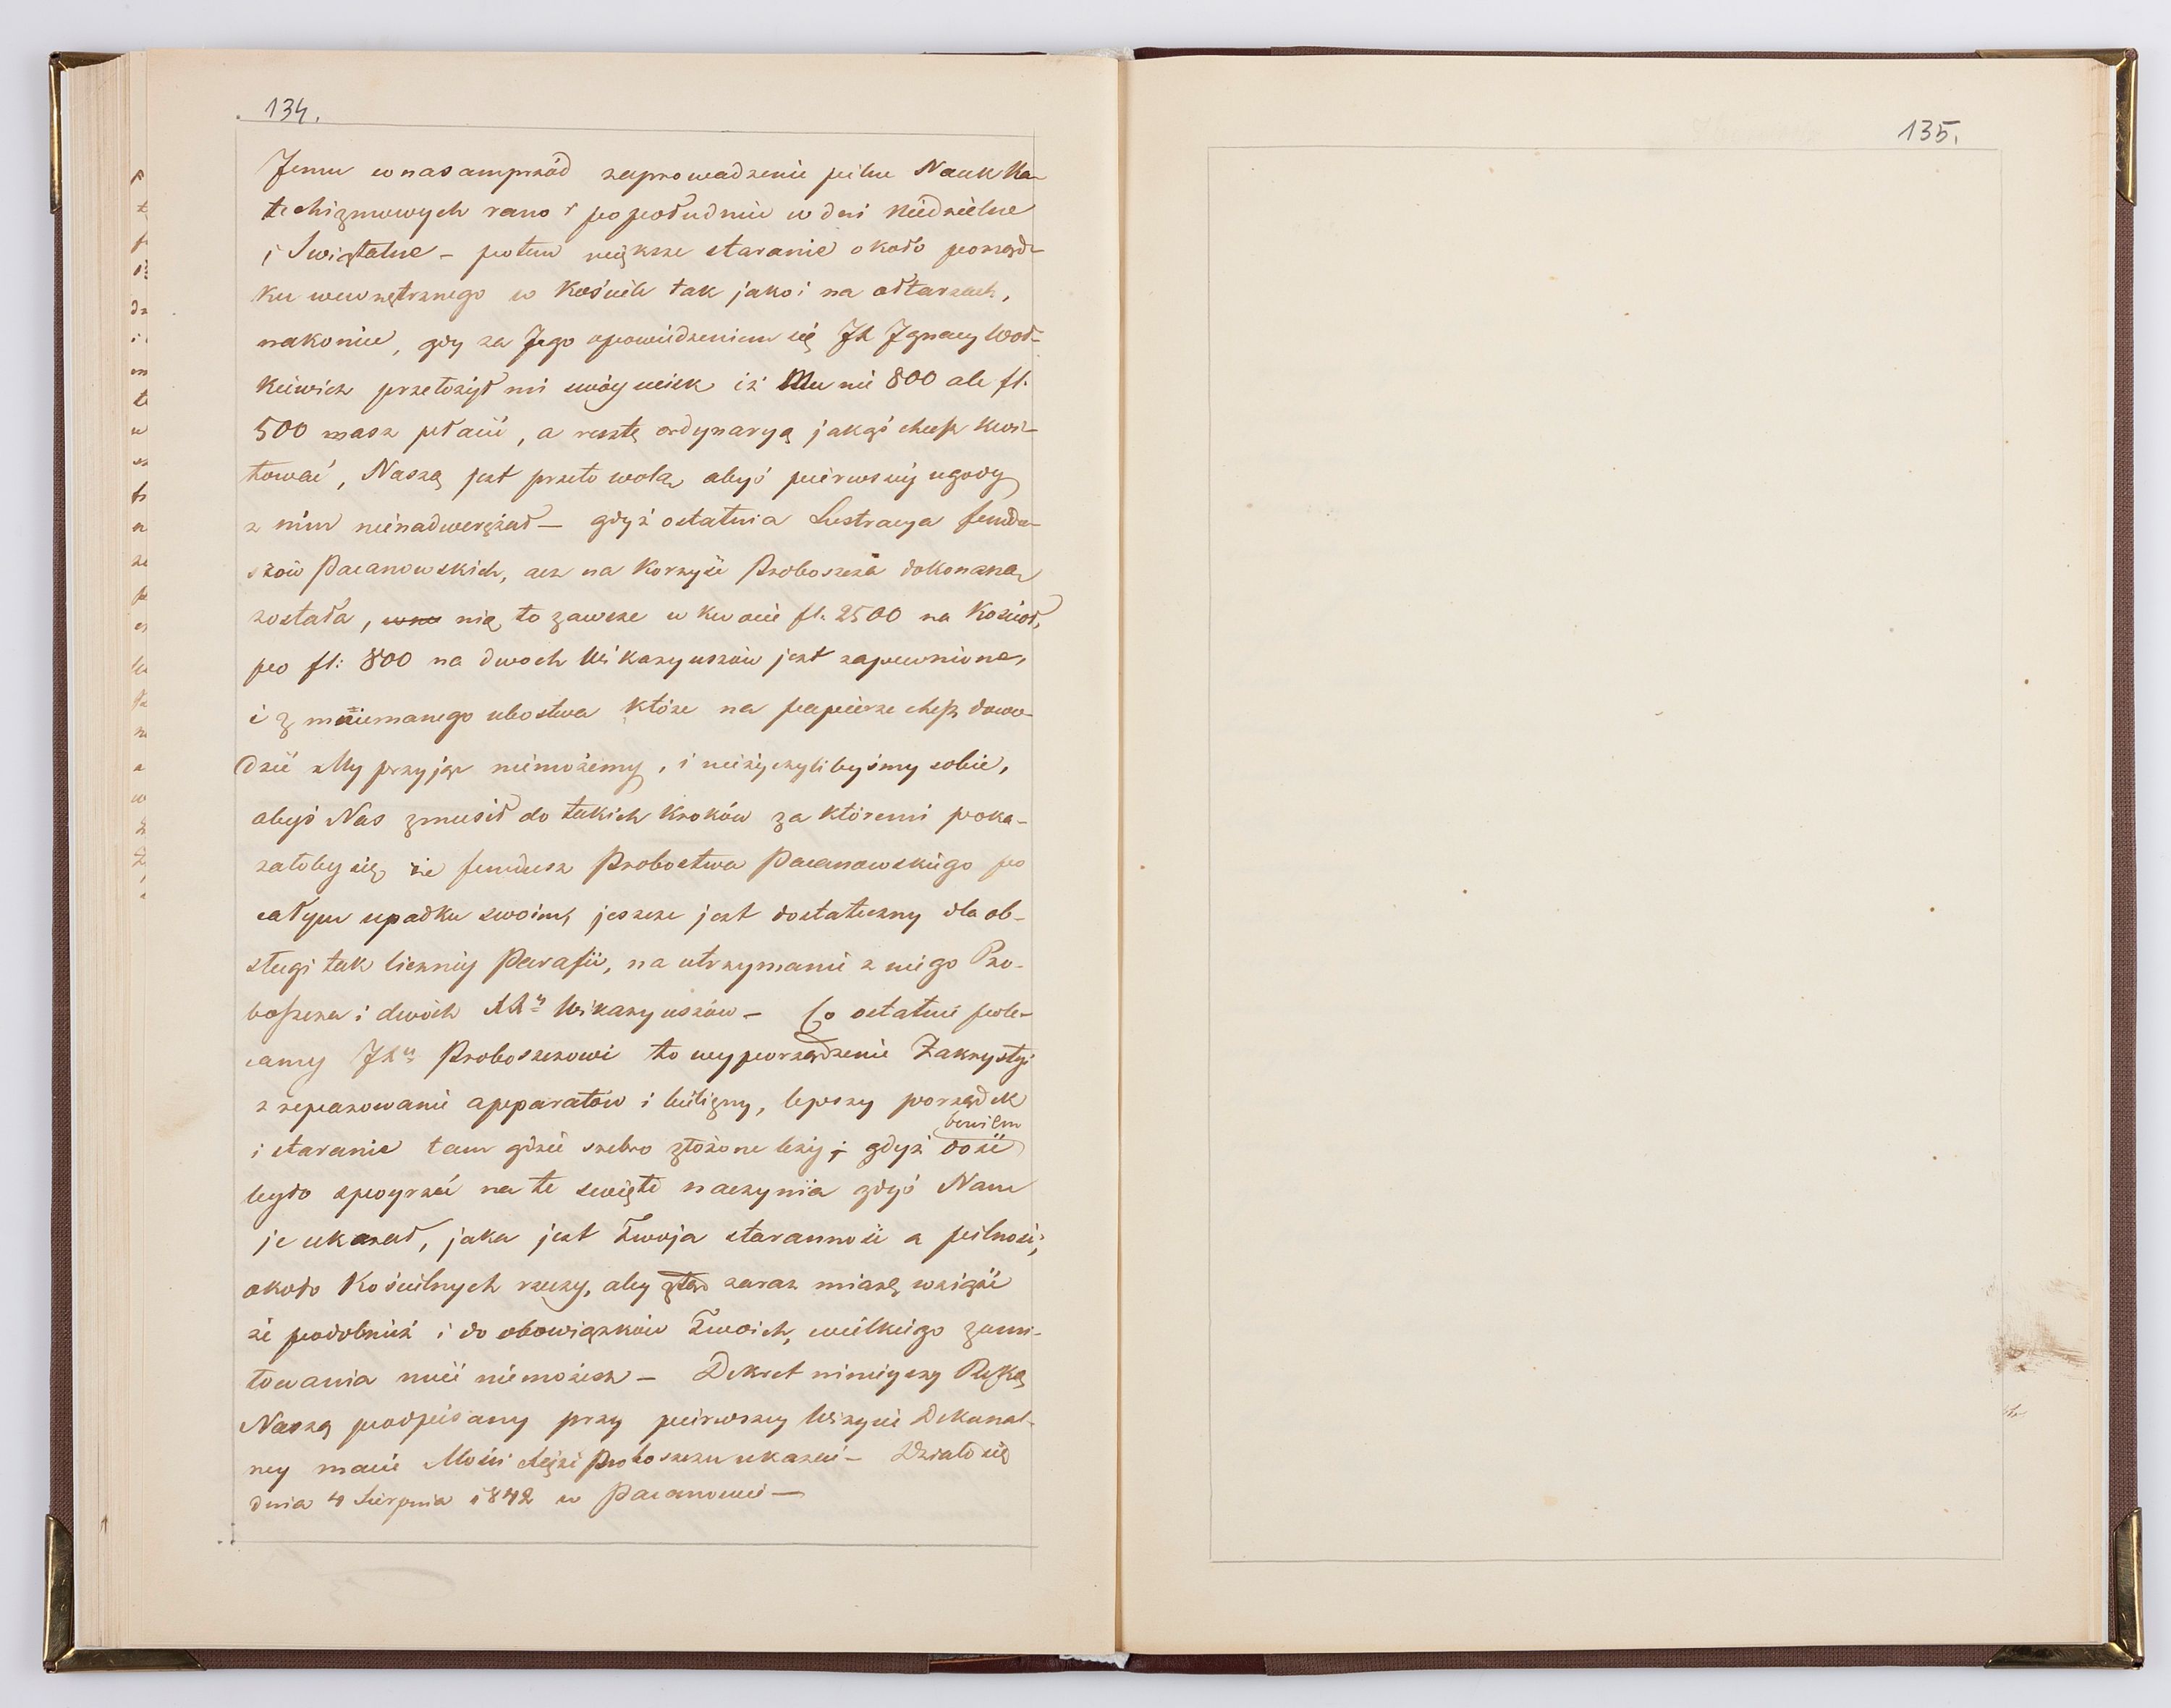 134.
Jemu w nasamprzód zaprowadzenie pilne Nauk Ka-
techizmowych rano i popołudniu w dni Niedzielne
i Swiętalne – potem większe staranie około porząd-
ku wewnętrznego w Kościele tak jako i na ołtarzach,
nakoniec, gdy za Jego opowiedzeniem się JX Ignacy Woł-
kiewicz przełożył mi swóy ucisk iż Mu nie 800 ale fl.
500 masz płacić, a resztę ordynaryą jakąś chcesz kwi-
tować, Naszą jest przeto wolą abyś pierwszéj ugody
z nim nienadwerężał – gdyż ostatnia Lustracya fundu-
szów Pacanowskich, acz na Korzyść Proboszcza dokonana
została, nią to zawsze w kwocie fl. 2500 na Kościoł,
po fl: 800 na dwoch Wikaryuszów jest zapewnione,
i z mniemanego ubostwa które na papierze chcesz dowo-
dzić My przyjąć niemożemy, i nieżyczylibyśmy sobie,
abyś Nas zmusił do takich Kroków za któremi poka-
załoby się że fundusz Probostwa Pacanowskiego po
całym upadku swoim, jeszcze jest dostateczny dla ob-
sługi tak licznéj Parafii, na utrzymanie z niego Pro-
boszcza i dwóch XXy Wikaryuszów – Co ostatnie pole-
camy JXu Proboszczowi to wyporządzenie Zakrystyi
zreparowanie apparatów i bielizny, lepszy porządek
i staranie tam gdzie srebro złożone leży; gdyż dość
bowiem
było spoyrzeć na te święte naczynia gdyś Nam
je ukazał, jaka jest Twoja staranność a pilność,
około Kościelnych rzeczy, aby ztąd zaraz miarę wziąść
że podobnież i do obowiązków Twoich, wielkiego zami-
łowania mieć niemożesz – Dekret ninieyszy Ręką
Naszą podpisany przy pierwszey Wizycie Dekanal-
ney macie Mości Xięże Proboszczu ukazać – Działo się
dnia 4 Sierpnia 1842 w Pacanowie –
135.